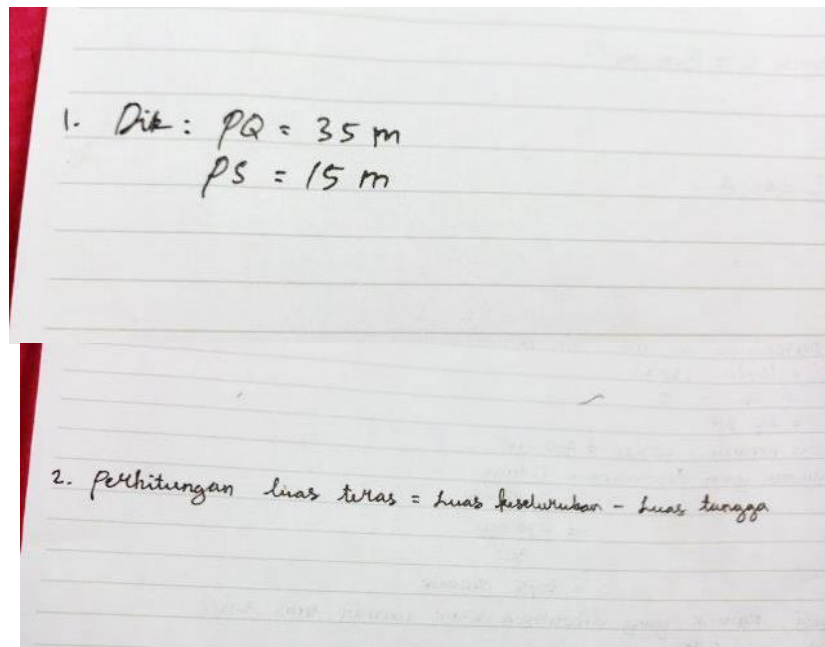 1. Dik : PQ = 35 m
PS = 15 m
2. Perhitungan luas teras = Luas keseluruhan - Luas tangga